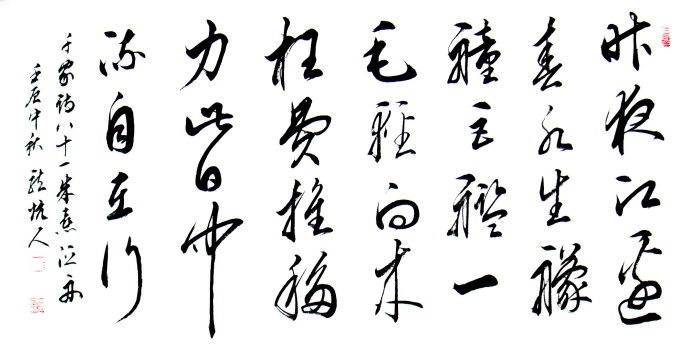 昨夜江邊
春水生艨
艟巨艦一
毛輕向来
枉費推移
力此日中
流自在行
千家詩八十一朱熹泛舟
壬辰中秋 人